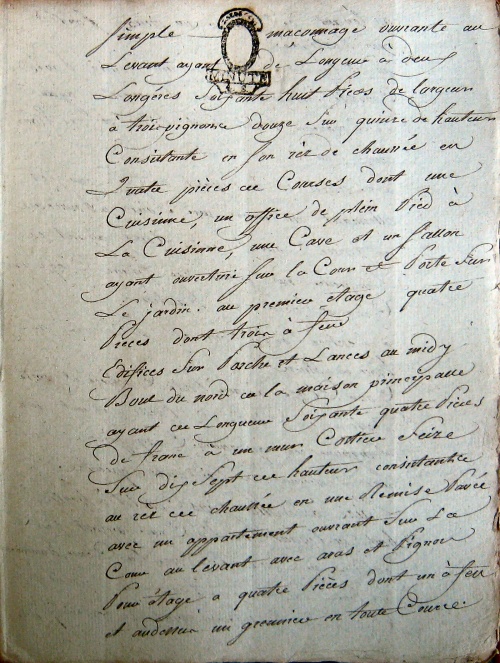 Simple maçonnage ouvrante au
Levant ayant de Longeur à deux
Longéres Soixante huit Pieds de largeur
à trois pignons douze Sur quinze de hauteur
Consistante en Son réz de chaussée en
Quatre pièces de Courses dont une
Cuisinne, un office de plein Pied à
La Cuisinne, une Cave et un Sallon
ayant ouverture Sur la Cour et Porte Sur
Le jardin. au premier étage quatre
Pièces dont trois à feu
Edifices Sur Porche et Lances au midy
Bout du nord de la maison principalle
ayant de Longueur Soixante quatre Pieds
de franc à un mur Seize
Sur dix Sept de hauteur consistante
au réz de chaussée en une Remise Pavée
avec un appartement ouvrant Sur La
Cour au levant avec et Pignon
Pour étage a quatre Pièces dont un à feu
et audessus un grennier en toute Course.
MINUTE